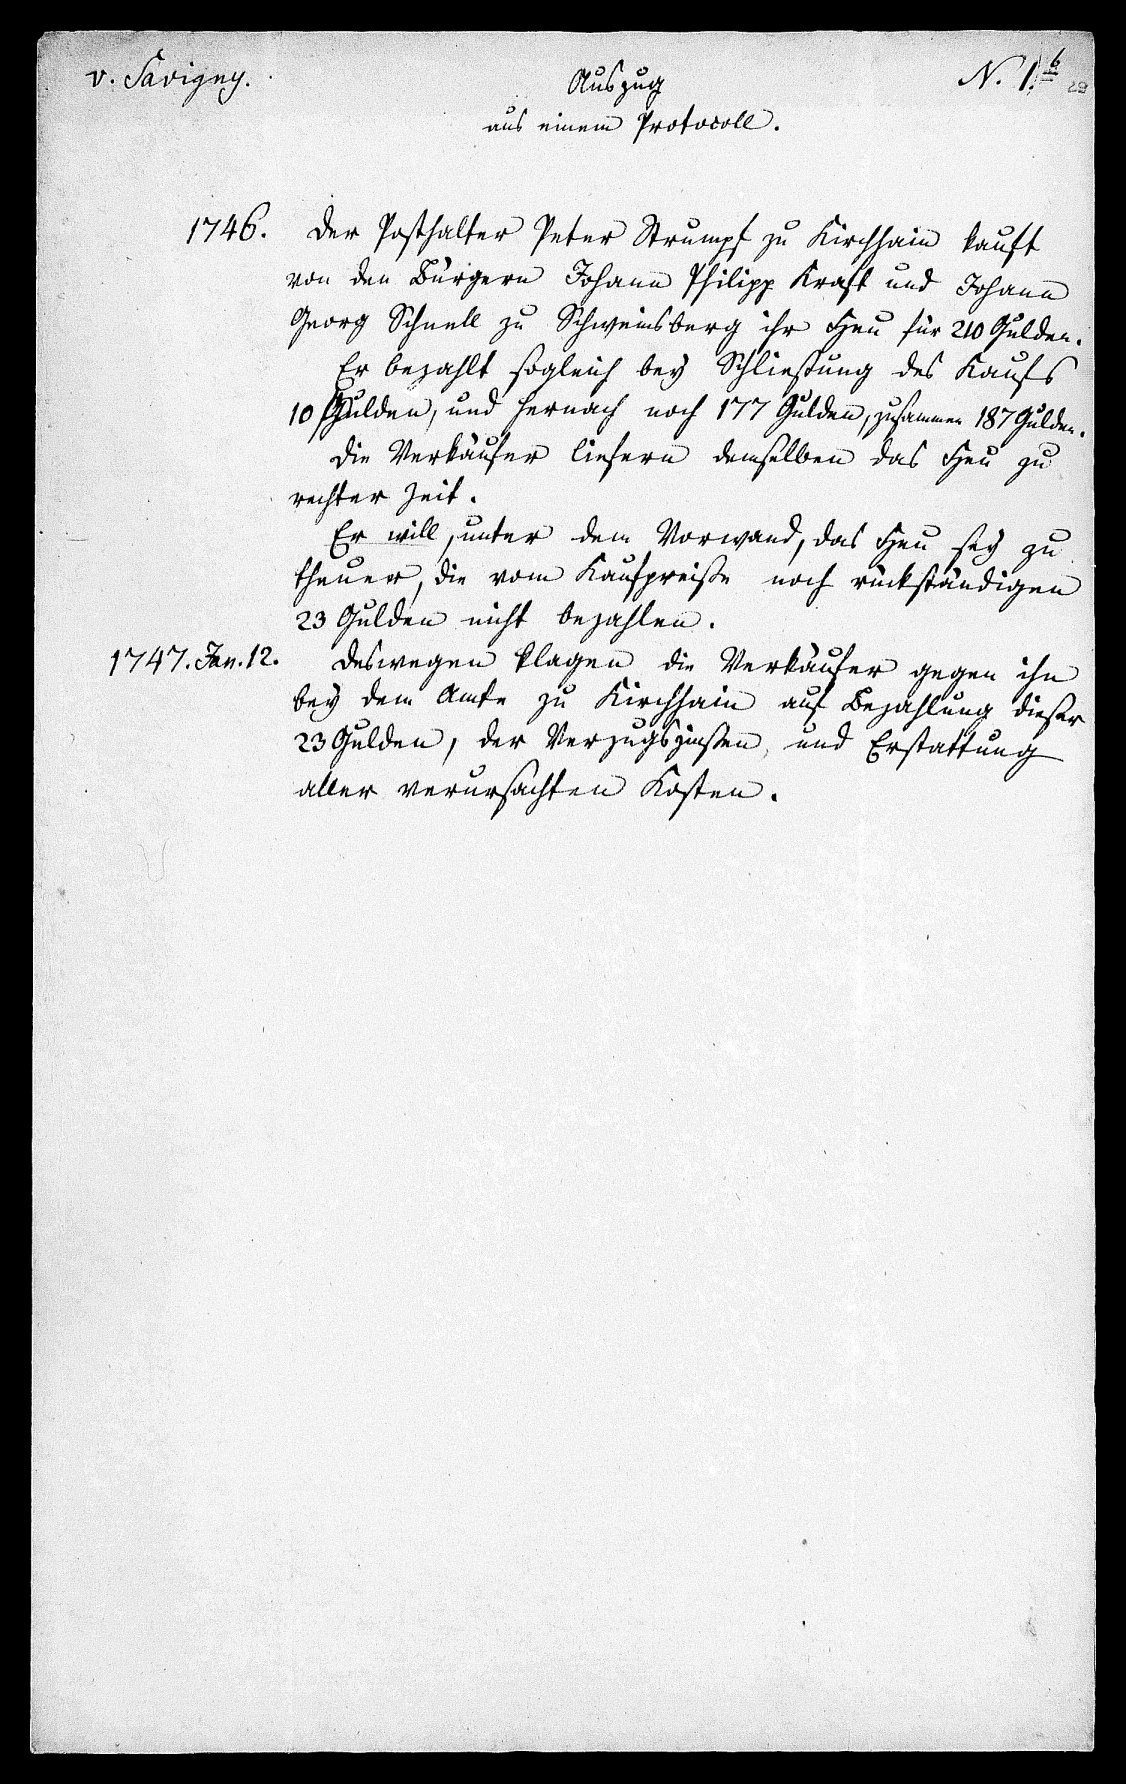 v. Savigny.
Auszug
N. 1.b
29
aus einem Protocoll.
1746. Der Posthalter Peter Strumpf zu Kirchhain kauft
von den Bürgern Johann Philipp Kraft und Johann
Georg Schnell zu Schweinsberg ihr Heu für 210 Gulden.
Er bezahlt sogleich bey Schließung des Kaufs
10 Gulden, und hernach noch 177 Gulden, zusammen 187 Gulden.
Die Verkäufer liefern demselben das Heu zu
rechter Zeit.
Er will, unter dem Vorwand, das Heu sey zu
theuer, die vom Kaufpreiße noch rückständigen
23 Gulden nicht bezahlen.
1747. Jan. 12. Deswegen klagen die Verkäufer gegen ihn
bey dem Amte zu Kirchhain auf Bezahlung dieser
23 Gulden, der Verzugszinßen, und Erstattung
aller verursachten Kosten.